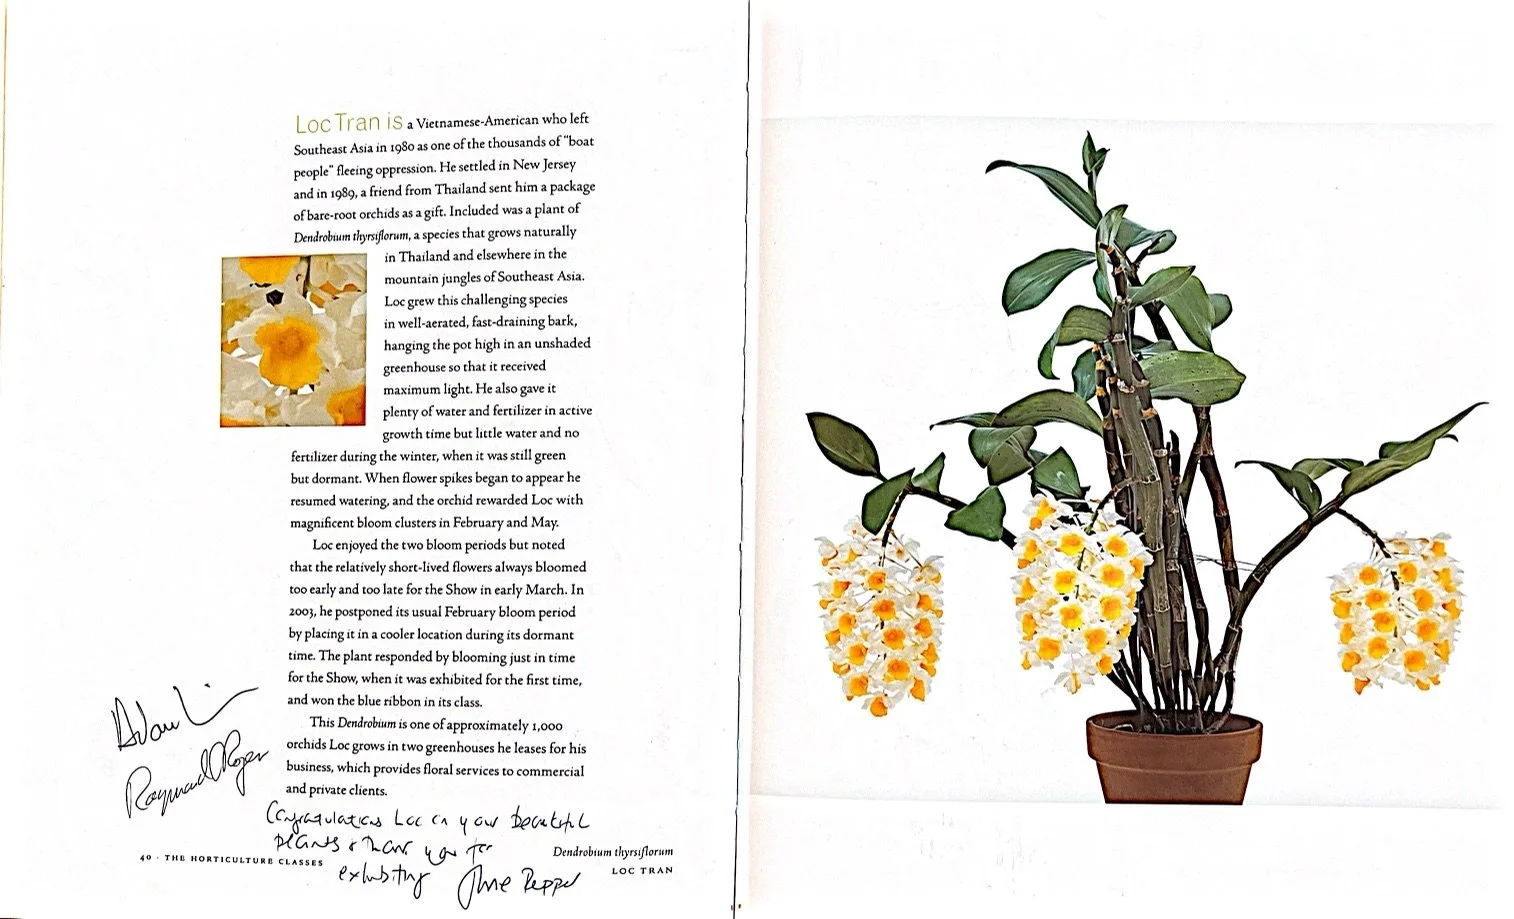 Loc Tran is a Vietnamese-American who left
Southeast Asia in 1980 as one of the thousands of "boat
people" fleeing oppression. He settled in New Jersey
and in 1989, a friend from Thailand sent him a package
of bare-root orchids as a gift. Included was a plant of
Dendrobium thyrsiflorum, a species that grows naturally
in Thailand and elsewhere in the
mountain jungles of Southeast Asia.
Loc grew this challenging species
in well-aerated, fast-draining bark,
hanging the pot high in an unshaded
greenhouse so that it received
maximum light. He also gave it
plenty of water and fertilizer in active
growth time but little water and no
fertilizer during the winter, when it was still green
but dormant. When flower spikes began to appear he
resumed watering, and the orchid rewarded Loc with
magnificent bloom clusters in February and May.
Loc enjoyed the two bloom periods but noted
that the relatively short-lived flowers always bloomed
too early and too late for the Show in early March. In
2003, he postponed its usual February bloom period
by placing it in a cooler location during its dormant
time. The plant responded by blooming just in time
for the Show, when it was exhibited for the first time,
and won the blue ribbon in its class.
This Dendrobium is one of approximately 1,000
orchids Loc grows in two greenhouses he leases for his
business, which provides floral services to commercial
and private clients.
Raymond Rogers
Congratulations Loc on your beautiful
plants & thank you for
exhibiting
40 · THE HORTICULTURE CLASSES
Dendrobium thyrsiflorum
LOC TRAN